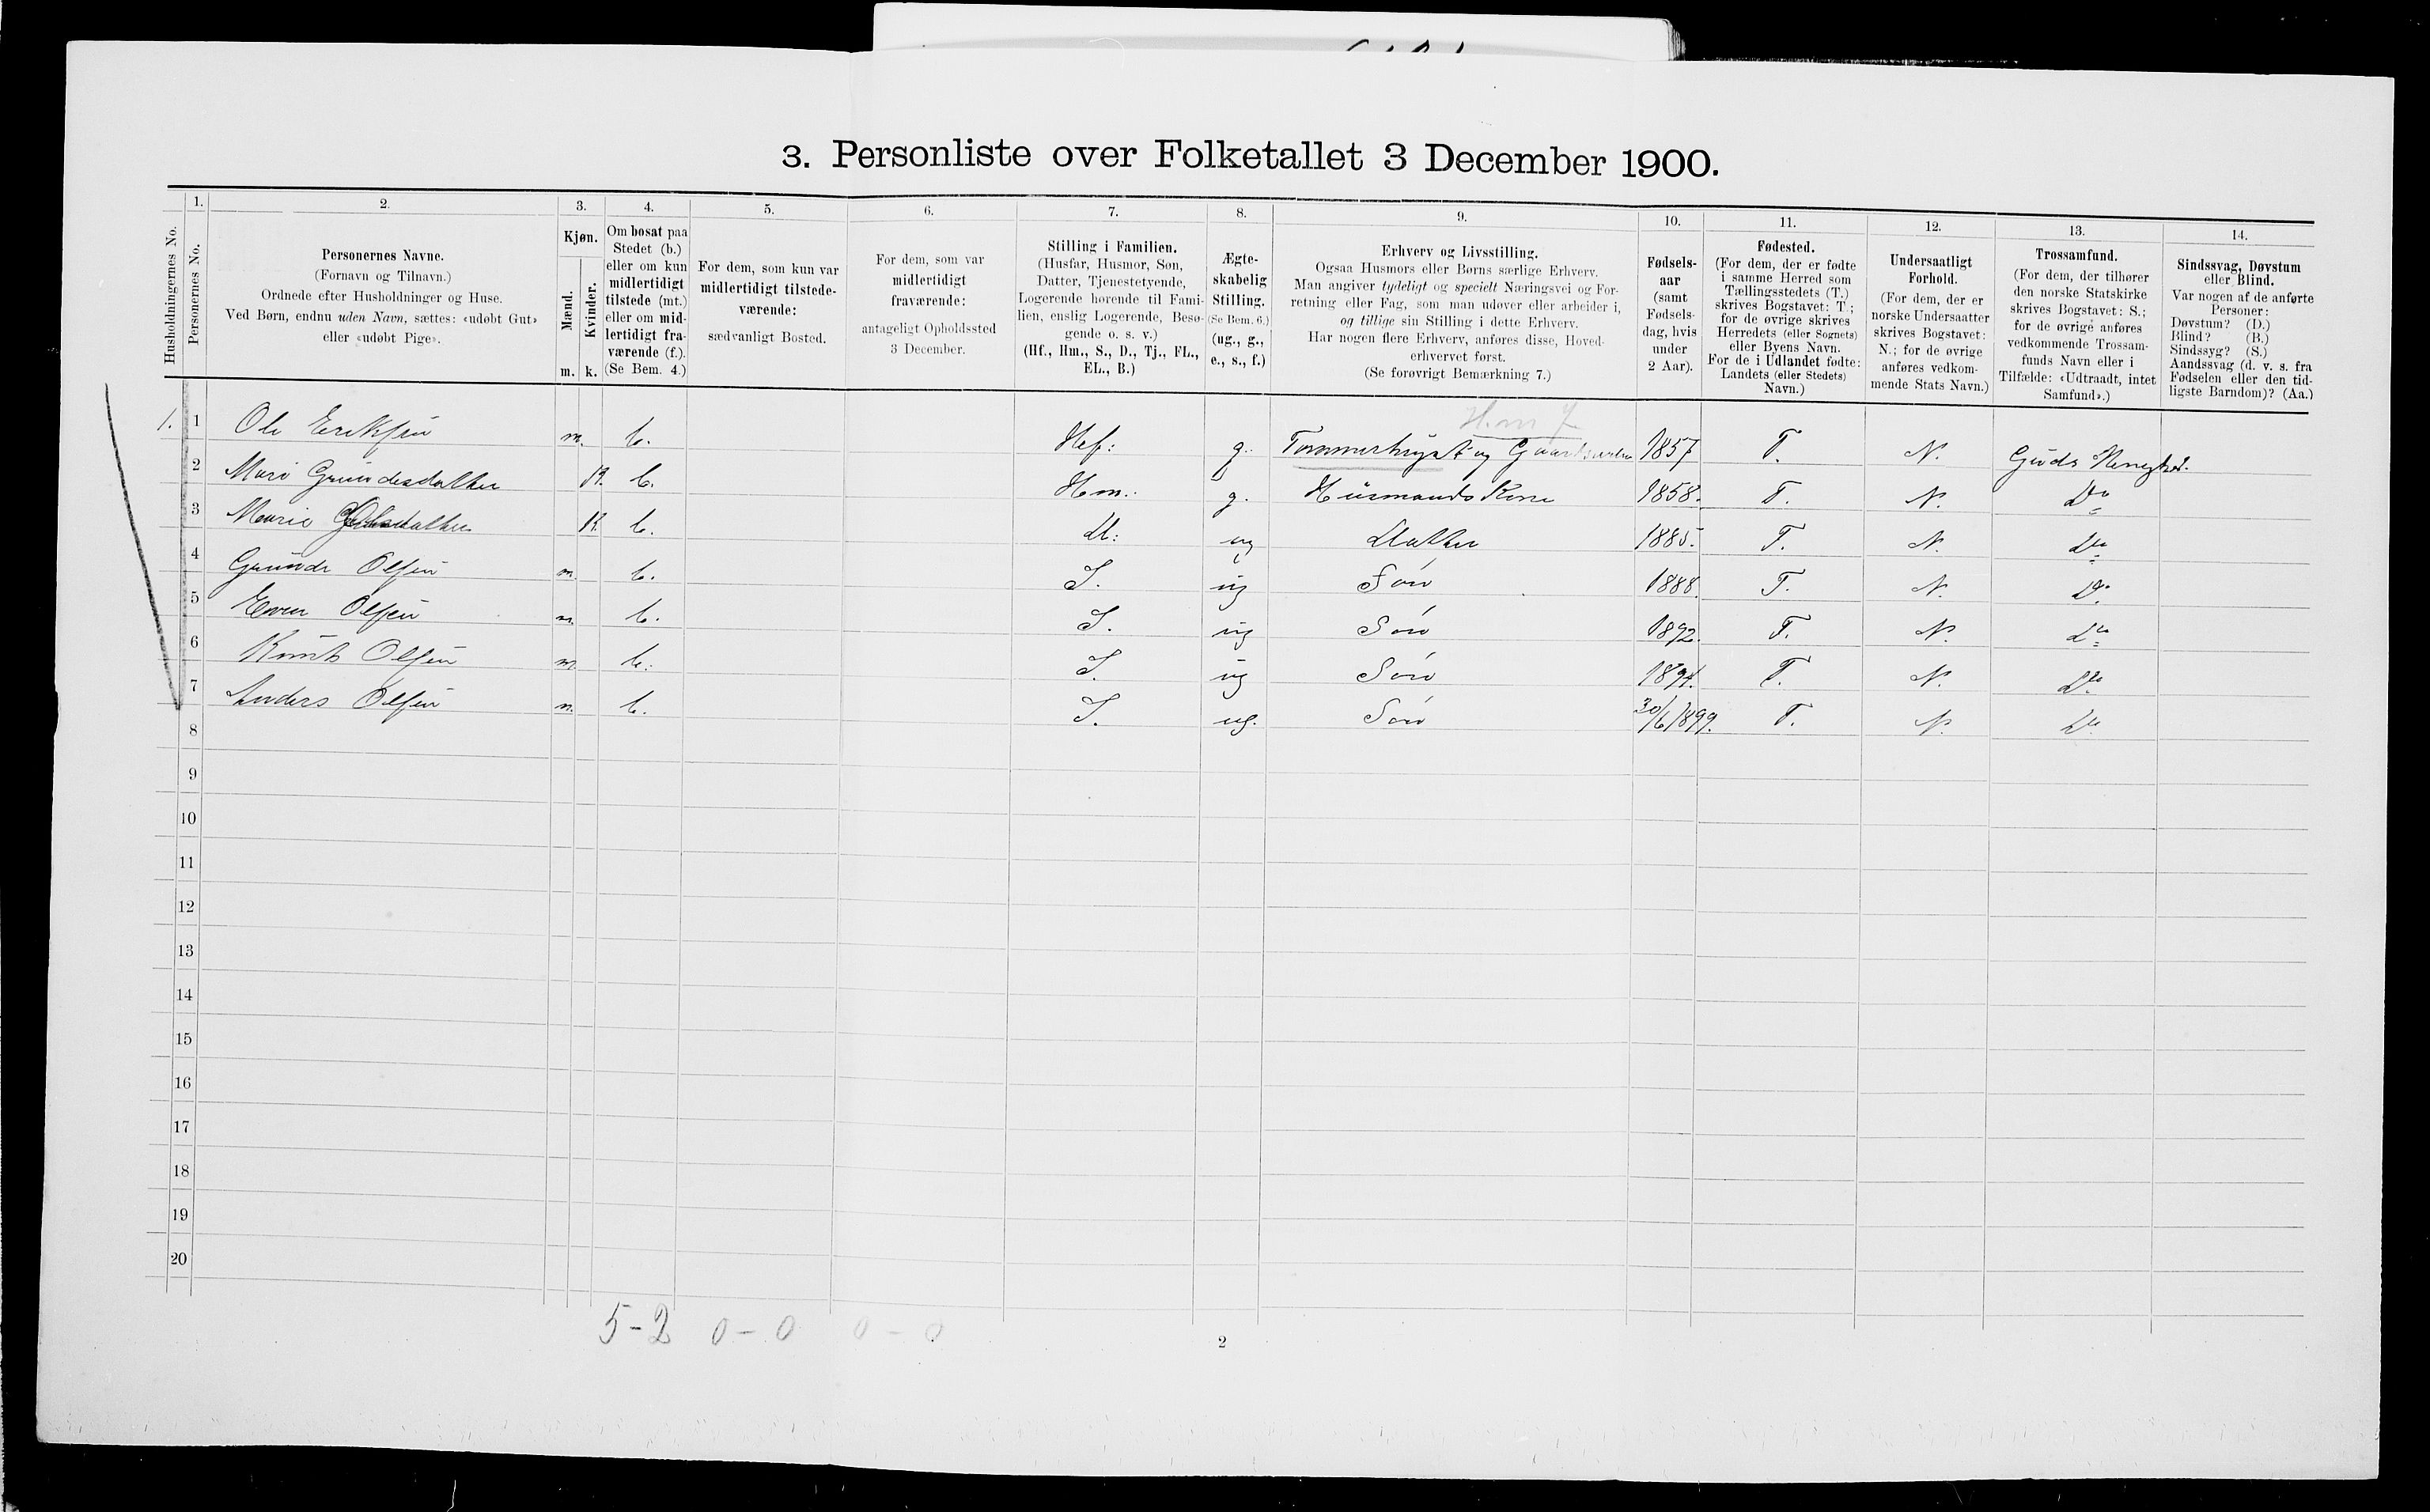 3. Personliste over Folketallet 3 December 1900.
Husholdningernes No.
1.
Personernes No.
2.
Personernes Navne.
(Fornavn og Tilnavn.)
Ordnede efter Husholdninger og Huse.
Ved Børn, endnu uden Navn, sættes: «udøbt Gut»
eller «udøbt Pige».
3.
Kjøn.
Mænd.
Kvinder.
m. k.
4.
Om bosat paa
Stedet (b.)
eller om kun
midlertidigt
tilstede (mt.)
eller om mid-
lertidigt fra-
værende (f.).
(Se Bem. 4.)
5.
For dem, som kun var
midlertidigt tilstede-
værende:
sædvanligt Bosted.
6.
For dem, som var
midlertidigt
fraværende:
antageligt Opholdssted
3 December.
7.
Stilling i Familien.
(Husfar, Husmor, Søn,
Datter, Tjenestetyende,
Logerende hørende til Fami-
lien, enslig Logerende, Besø-
gende o. s. v.)
(Hf., Hm., S., D., Tj., FL.,
EL., B.)
8.
Ægte-
skabelig
Stilling.
(Se Bem. 6.)
(ug., g.,
e., s., f.)
9.
Erhverv og Livsstilling.
Ogsaa Husmors eller Børns særlige Erhverv.
Man angiver tydeligt og specielt Næringsvei og For-
retning eller Fag, som man udøver eller arbeider i,
og tillige sin Stilling i dette Erhverv.
Har nogen flere Erhverv, anføres disse, Hoved-
erhvervet først.
(Se forøvrigt Bemærkning 7.)
10.
Fødsels-
aar
(samt
Fødsels-
dag, hvis
under
2 Aar).
11.
Fødested.
(For dem, der er fødte
i samme Herred som
Tællingsstedets (T.)
skrives Bogstavet: T.;
for de øvrige skrives
Herredets (eller Sognets)
eller Byens Navn.
For de i Udlandet fødte:
Landets (eller Stedets)
Navn.)
12.
Undersaatligt
Forhold.
(For dem, der er
norske Undersaatter
skrives Bogstavet:
N.; for de øvrige
anføres vedkom-
mende Stats Navn.)
13.
Trossamfund.
(For dem, der tilhører
den norske Statskirke
skrives Bogstavet: S.;
for de øvrige anføres
vedkommende Trossam-
funds Navn eller i
Tilfælde: «Udtraadt, intet
Samfund».)
14.
Sindssvag, Døvstum
eller Blind.
Var nogen af de anførte
Personer:
Døvstum? (D.)
Blind? (B.)
Sindssyg? (S.)
Aandssvag (d. v. s. fra
Fødselen eller den tid-
ligste Barndom)? (Aa.)
1. 1 Ole Eriksen m. b. Hf: g. Tømmerhugst og 1857 T. N. Guds Menighed.
2 Mari Grundesdatter K. b. Hm.: g. Husmands Kone 1858. T. N. Do
3 Marie Olsdatter K b. D: ug Datter 1885. T. N. Do
4 Grunde Olsen m. b. S. ug Søn 1888. T. N. Do
5 Even Olsen m. b. S. ug Søn 1892. T. N. Do
6 Knut Olsen m. b. S. ug Søn 1894. T. N. Do
7 Anders Olsen m. b. S. ug. Søn 30/6 1899. T. N. Do
8
9
10
11
12
13
14
15
16
17
18
19
20
5-2 0-0 0-0
2